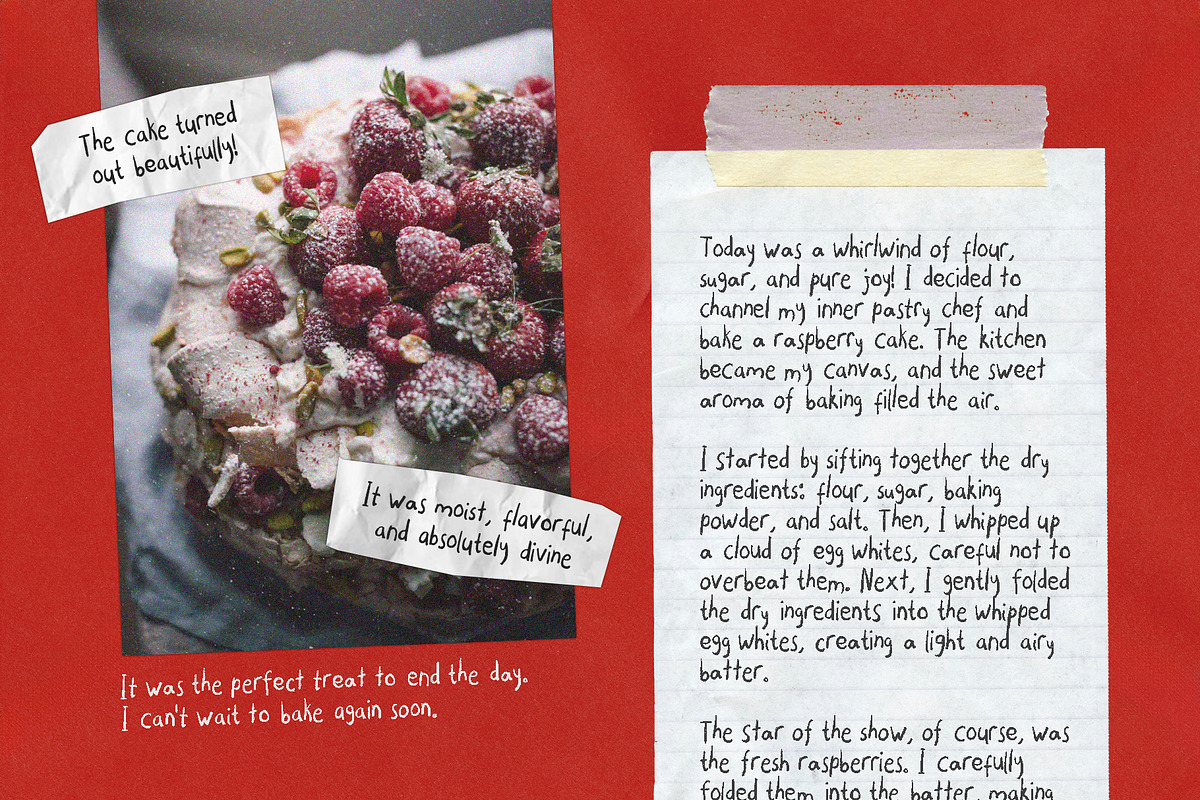 The cake turned
out beautifully!
It was moist, flavorful,
and absolutely divine
It was the perfect treat to end the day.
I can't wait to bake again soon.
Today was a whirlwind of flour,
sugar, and pure joy! I decided to
channel my inner pastry chef and
bake a raspberry cake. The kitchen
became my canvas, and the sweet
aroma of baking filled the air.
I started by sifting together the dry
ingredients: flour, sugar, baking
powder, and salt. Then, I whipped up
a cloud of egg whites, careful not to
overbeat them. Next, I gently folded
the dry ingredients into the whipped
egg whites, creating a light and airy
batter.
The star of the show, of course, was
the fresh raspberries. I carefully
folded them into the batter, making